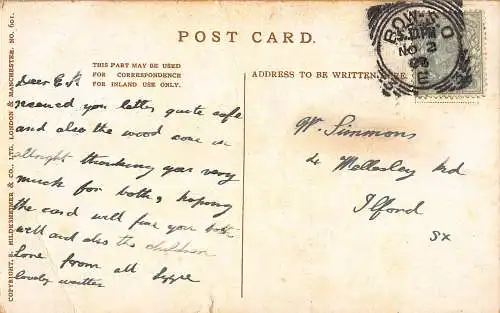 POST CARD.
THIS PART MAY BE USED
FOR CORRESPONDENCE
FOR INLAND USE ONLY.
ADDRESS TO BE WRITTEN HERE.
BOW. B.O
NO 2
E
Dear E.
received you letter quite safe
and also the wood come in
allright thanking you very
much for both, hoping
the card will find you both
well and also the children
Love from all Lizzie
lovely weather
W. Simmons
4 Wellesley Rd
Ilford
Sx
COPYRIGHT, E. HILDESHEIMER & CO., LTD. LONDON & MANCHESTER. NO. 601.